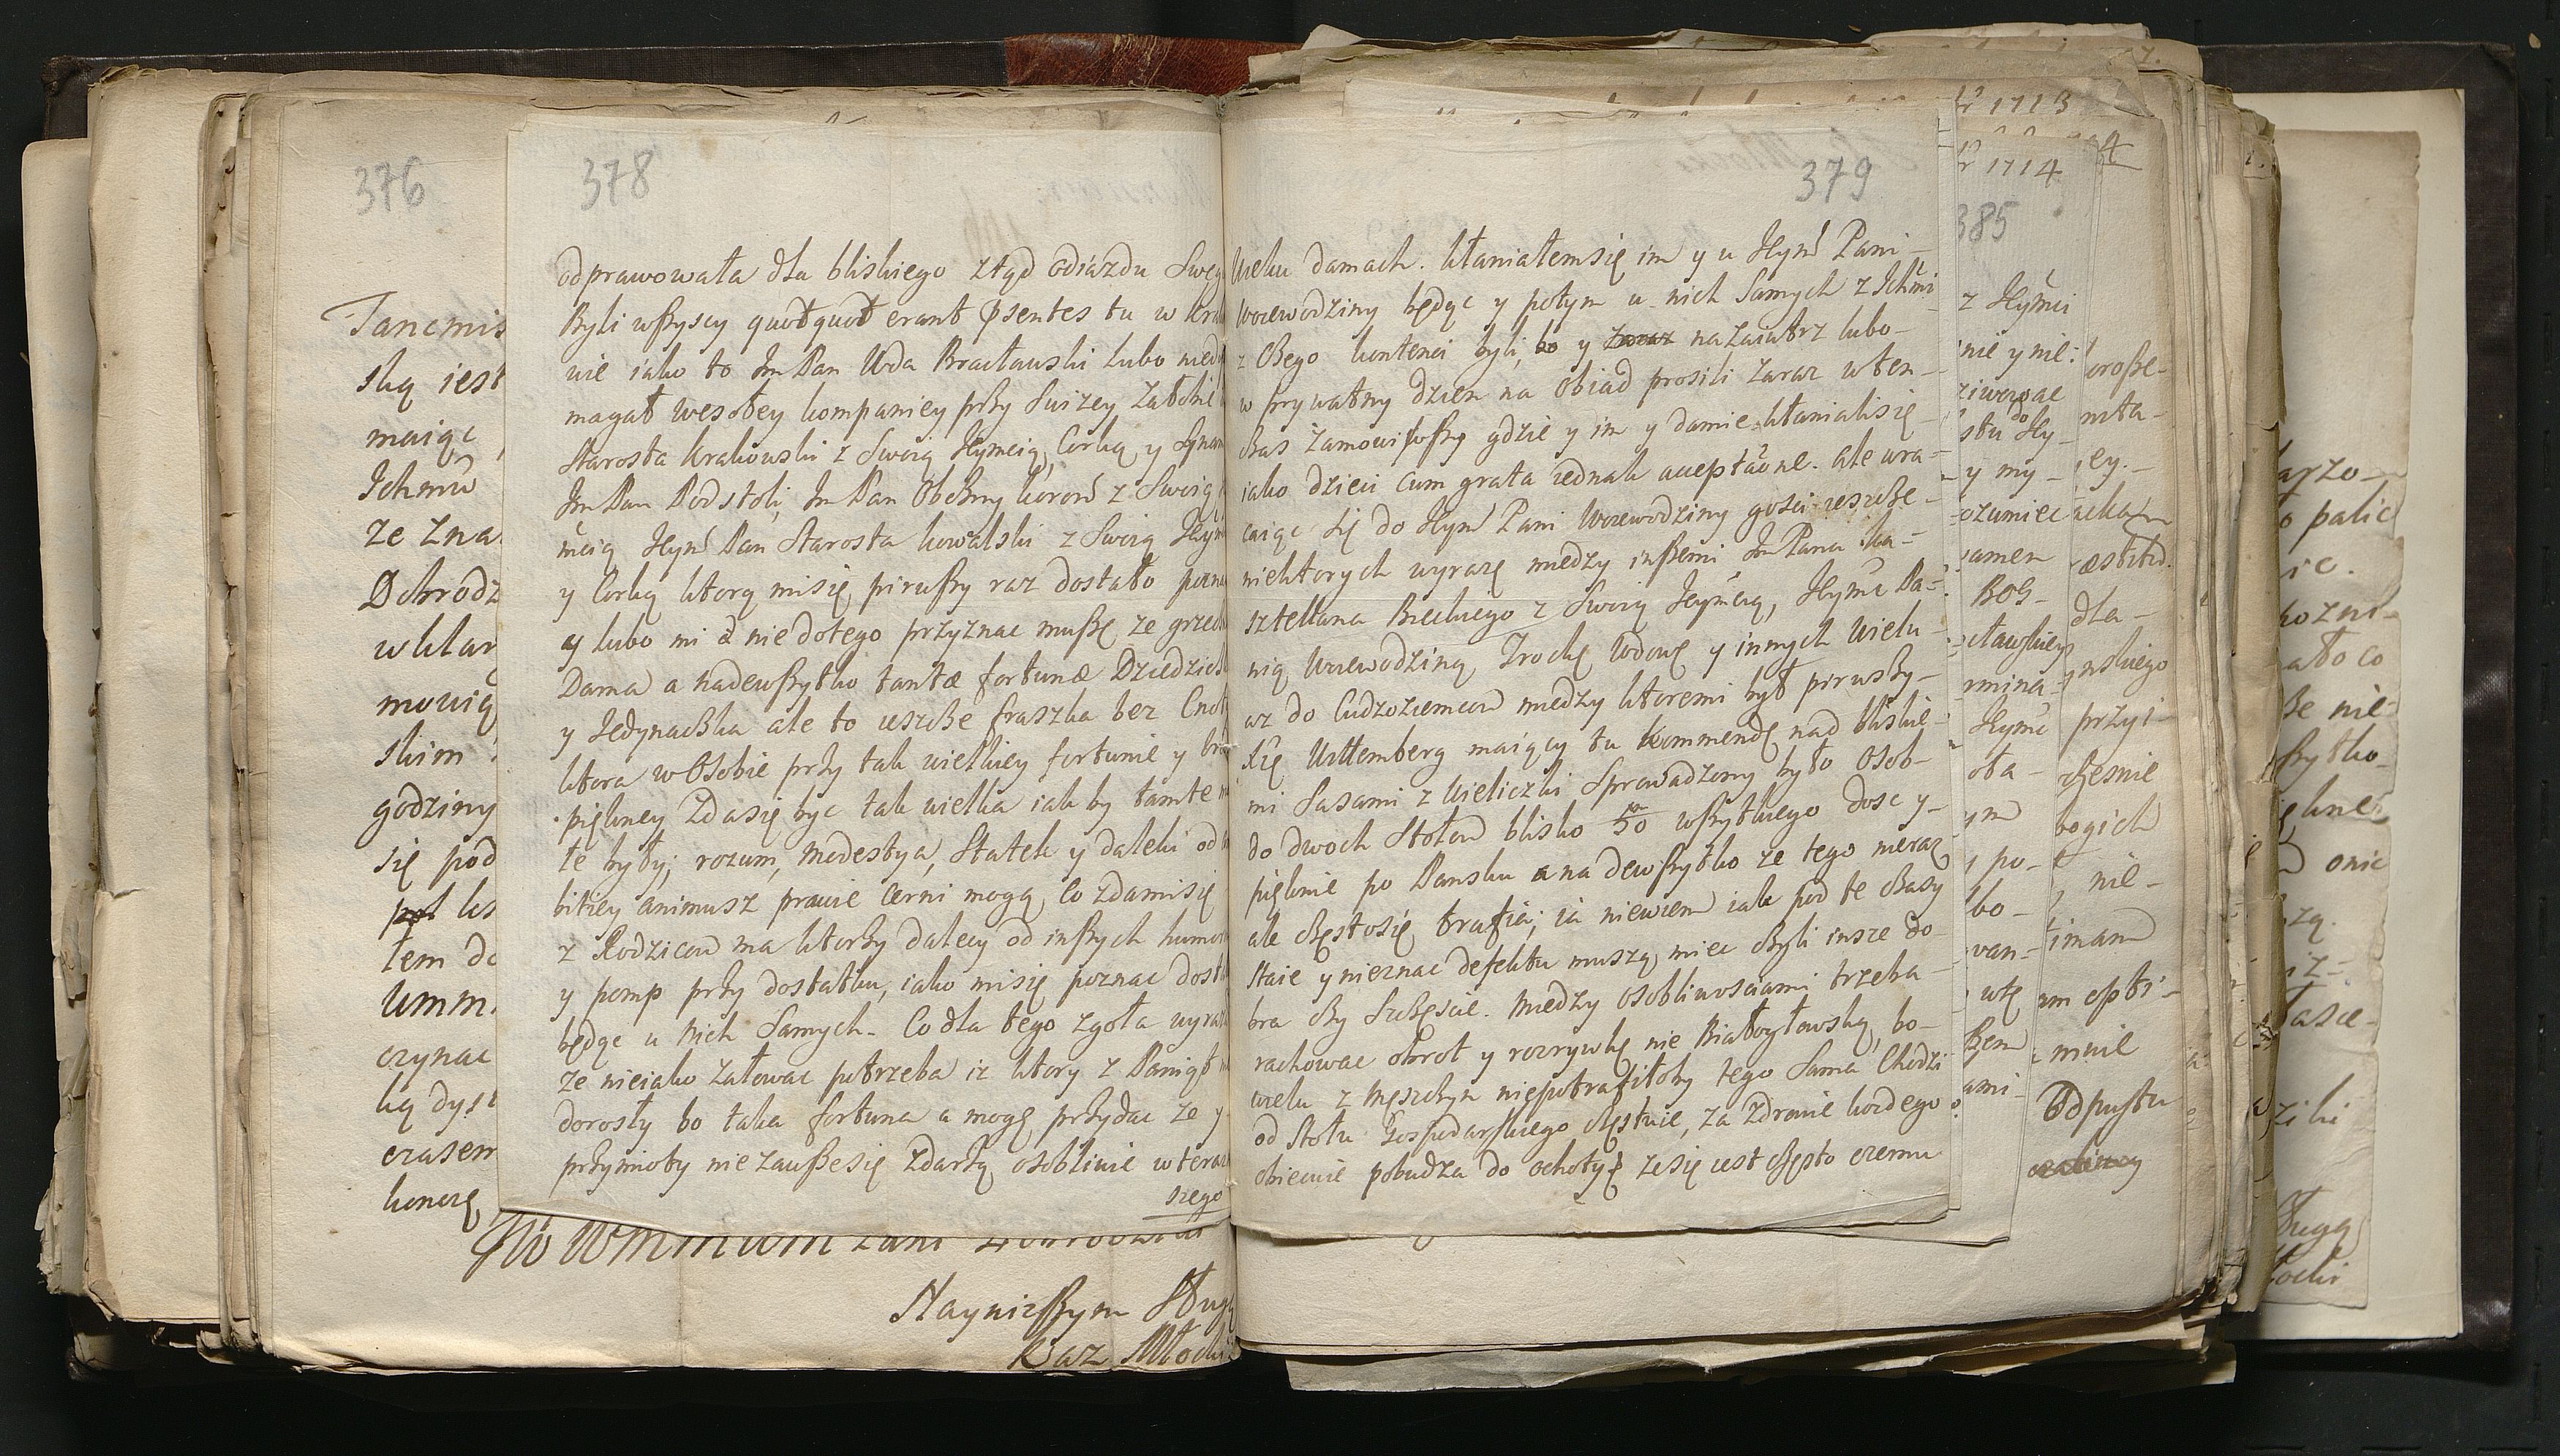 376
Tancmis
ską iest
maiąc
Ichmw
ze zna
Dobrodz
w klar
mowią
skim
godziny
się pod
les
tem do
Umm
czynac
ką dyst
czasem
koncżę
378
odprawowała dla bliskiego ztąd odiazdu Sweg
Byli wszyscy quotquot erant psentes tu w kra
wie iako to Im Pan Wda Bracławski lubo niedo
magał wesołey kompaniey przy Swizey
Starosta krakowski z Swoią Jeymcią, Corką, y Synam
Im Pan Podstoli, Im Pan Oboźny koron z Swoią
mcią Jeym Pan Starosta kowalski z Swoią Jeym
y Corką ktorą misię pirwszy raz dostało pozna
y lubo mi nie dotego przyznac muszę ze grzec
Dama a nadewszytko tantæ fortunæ Dziedzicz
y Jedynaczka ale to ieszcze fraszka bez Cnot
ktora w Osobie przy tak wielkiey fortunie y
piękney zdasię byc tak wielka iak by tamte
te były; rozum, modestya, Statek y daleki od
bitiey animusz prawie cerni mogą, co zdamisię
z Rodzicow ma ktorzy dalecy od inszych humor
y pomp przy dostatku, iako misię poznac dosta
będąc u nich Samych. Co dla tego zgoła wyraz
ze nieiako załowac potrzeba iz ktory z Paniąt
dorosły bo taka fortuna a mogę przydac ze y
przymioty nie zawszesię zdarzą osobliwie w teraz
szego
WMM Pana Dobrodzieia
Nayniższym Sług
Kaz Młocki
379
Wielu damach. kłaniałemsię im y u Jeym Pani
Woiewodziny będąc y potym u nich Samych z Ichmi
z czego kontenci byli, y nazaiutrz lubo
w prywatny dzien na Obiad prosili zaraz w ten
czas zamowiwszy gdzie y im y damie kłanialisię
iako dzieci cum grata iednak acceptaone. ale wra
caiąc się do Jeym Pani Woiewodziny gosci ieszcze
niektorych wyrażę miedzy inszemi Im Pana ka
sztellana Bieckiego z Swoią Jeymcią, Jeymc Pa
nią Woiewodziną Trockę Wdowę y innych wielu
az do Cudzoziemcow miedzy ktoremi był pirwszy
Xżę Wittemberg maiący tu kommendę nad bliskie
mi Sasami z Wieliczki Sprawadzony było Osob
do dwoch Stołow blisko 50 wszytkiego dosc y
pięknie po Pansku a nadewszytko ze tego nieraz
ale częstosię trafia; ia niewiem iak pod te czasy
staie y nieznac defektu muszą miec czyli insze do
bra czy Szczęscie. Miedzy osobliwosciami trzeba
rachowac obrot y rozrywkę nie Białogłowską, bo
wielu z Męszczyn niepotrafiłoby tego Sama Chodzi
od Stołu Gospodarskiego częstuie, za zdrowie kożdego
obiecuie pobudza do ochoty ze się iest często czemu
1713
1714
385
z Jeymci
nie y nie
stu Jey
y my
ozumiec
amen
BOG
cławskiey
rmina
Jeymc
ota
ym
y po
bo
van
wtę
ami
orosze
mta
iey.
dla
ynskiego
przyi
czesnie
bogich
nie
timam
mnie
Odpustu
arzo
o palic
ic.
ato co
ze nie
szytko
iękne
onic
zą.
łasce
zili
Sługą
łocki